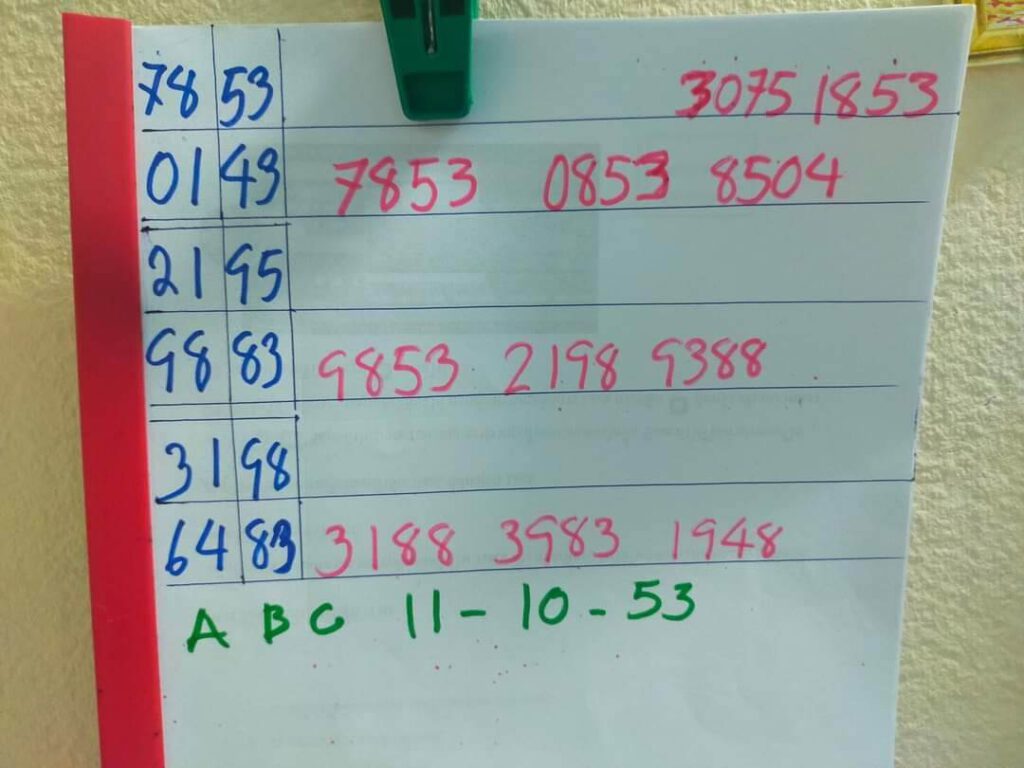 78 53 3075 1853
01 43 7853 0853 8504
21 95
98 83 9853 2198 9388
31 98
64 83 3188 3983 1948
A B C 11 - 10 - 53